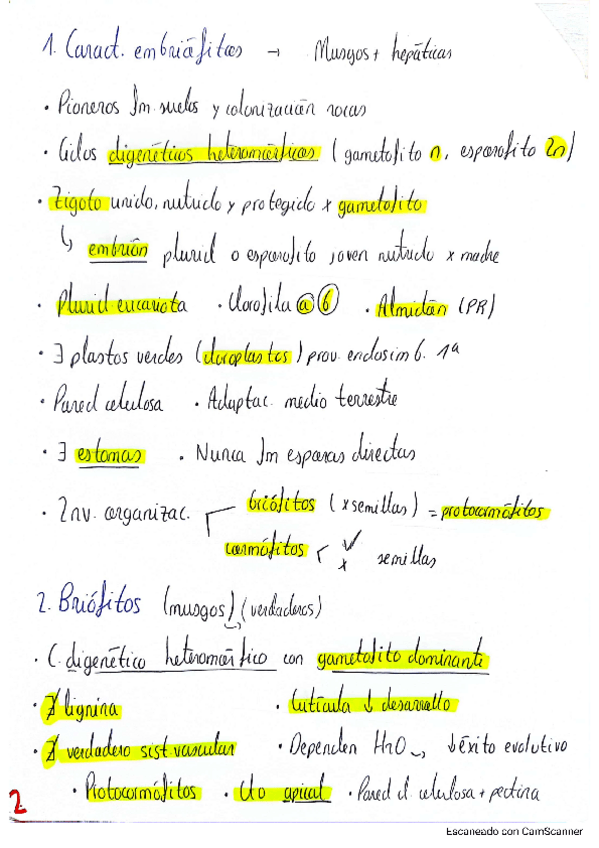 1. Caract. embriófitos → Musgos + hepáticas
• Pioneros fm suelos y colonización rocas
• Ciclos digenéticos heteromórficos (gametofito n, esporofito 2n)
• Zigoto unido, nutrido y protegido x gametofito
↳ embrión plurid o esporofito joven nutrido x madre
• Plurid eucariota • Clorofila a b • Almidón (PR)
• ∃ plastos verdes (cloroplastos) prov. endosimb. 1ª
• Pared celulosa • Adaptac. medio terrestre
• ∃ estomas • Nunca fm esporas directas
• 2 nv. organizac. briófitos (x semillas) = protocormófitos
cormófitos ✓ x semillas
2. Briófitos (musgos) (verdaderos)
• C. digenético heteromórfico con gametofito dominante
• ∄ lignina • Cutícula ↓ desarrollo
• ∄ verdadero sist vascular • Dependen H2O ↓ éxito evolutivo
• Protocormófitos • apical • Pared celulosa + pectina
2.
Escaneado con CamScanner